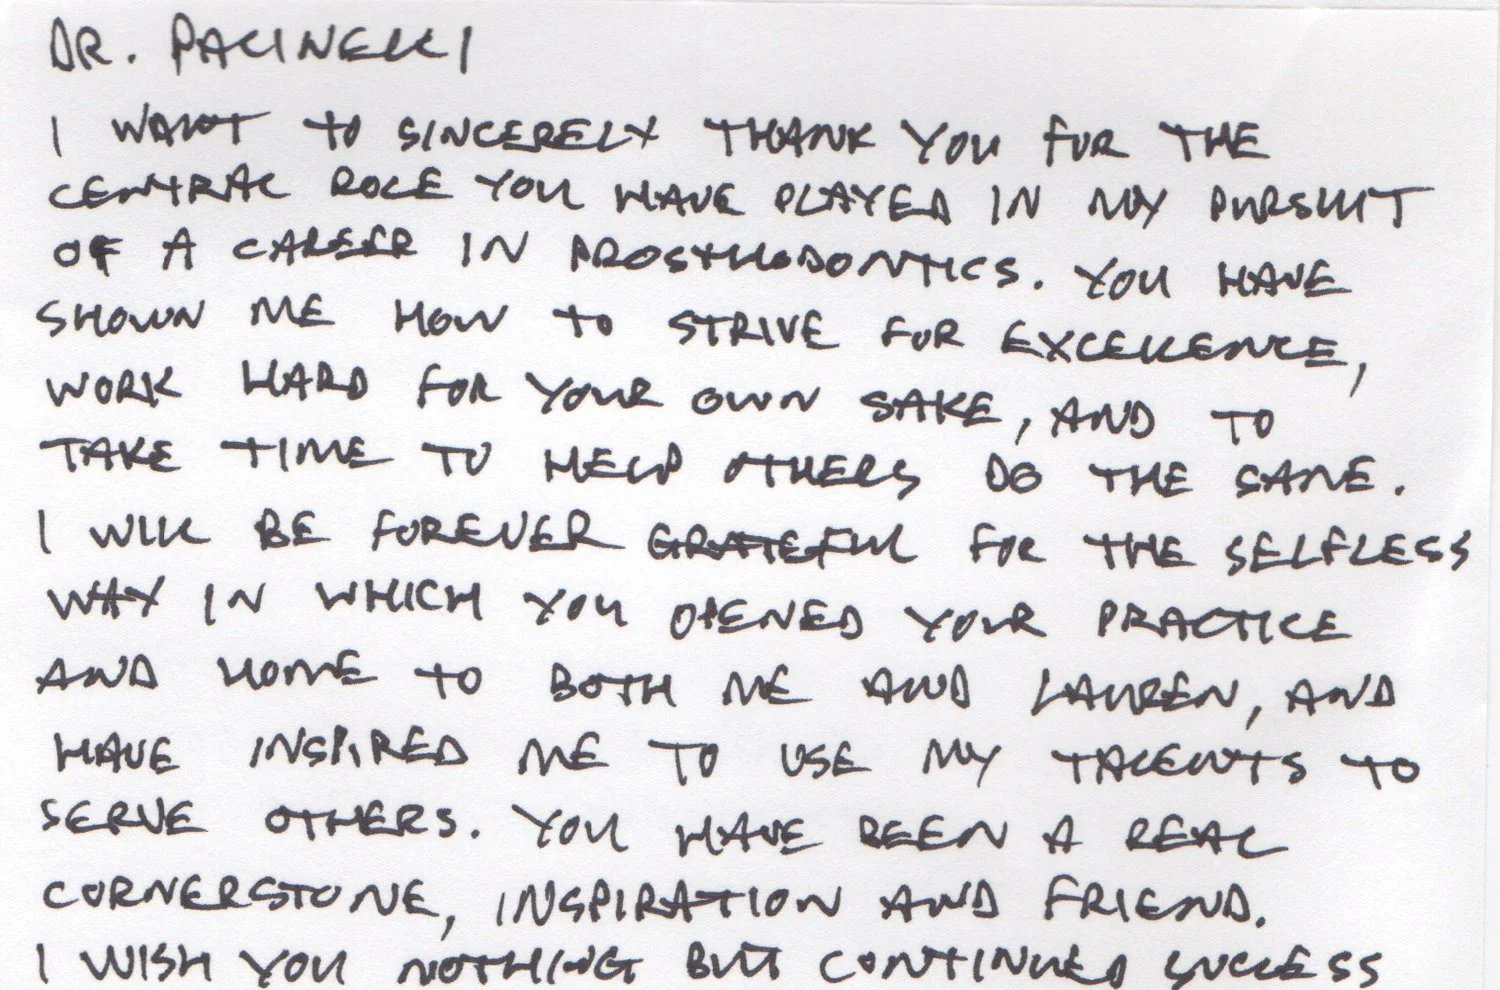 DR. PACINELLI
I WANT TO SINCERELY THANK YOU FOR THE
CENTRAL ROLE YOU HAVE PLAYED IN MY PURSUIT
OF A CAREER IN PROSTHODONTICS. YOU HAVE
SHOWN ME HOW TO STRIVE FOR EXCELLENCE,
WORK HARD FOR YOUR OWN SAKE, AND TO
TAKE TIME TO HELP OTHERS DO THE SAME.
I WILL BE FOREVER GRATEFUL FOR THE SELFLESS
WAY IN WHICH YOU OPENED YOUR PRACTICE
AND HOME TO BOTH ME AND LAUREN, AND
HAVE INSPIRED ME TO USE MY TALENTS TO
SERVE OTHERS. YOU HAVE BEEN A REAL
CORNERSTONE, INSPIRATION AND FRIEND.
I WISH YOU NOTHING BUT CONTINUED SUCCESS